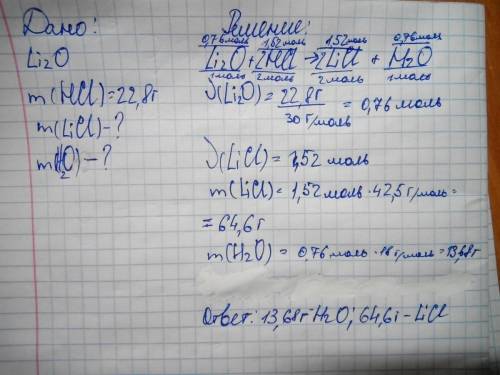 Дано:
Li₂O
m(HCl)=22,8г
m(LiCl)-?
m(H₂O)-?
Решение:
0,76моль 1,52моль 1,52моль 0,76моль
Li₂O+2HCl→2LiCl+H₂O
1моль 2моль 2моль 1моль
ν(Li₂O)=22,8г/30г/моль=0,76моль
ν(LiCl)=1,52моль
m(LiCl)=1,52моль·42,5г/моль=
=64,6г
m(H₂O)=0,76моль·18г/моль=13,68г
Ответ: 13,68г-H₂O; 64,6г-LiCl